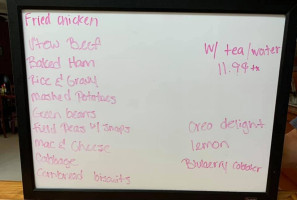 Fried chicken
Stew Beef
Baked Ham
Rice & Gravy
mashed Potatoes
Green beans
Field Peas w/ snaps
mac & Cheese
Cabbage
Cornbread biscuits
w/ tea/water
11.99 +tx
Oreo delight
lemon
Blueberry cobbler